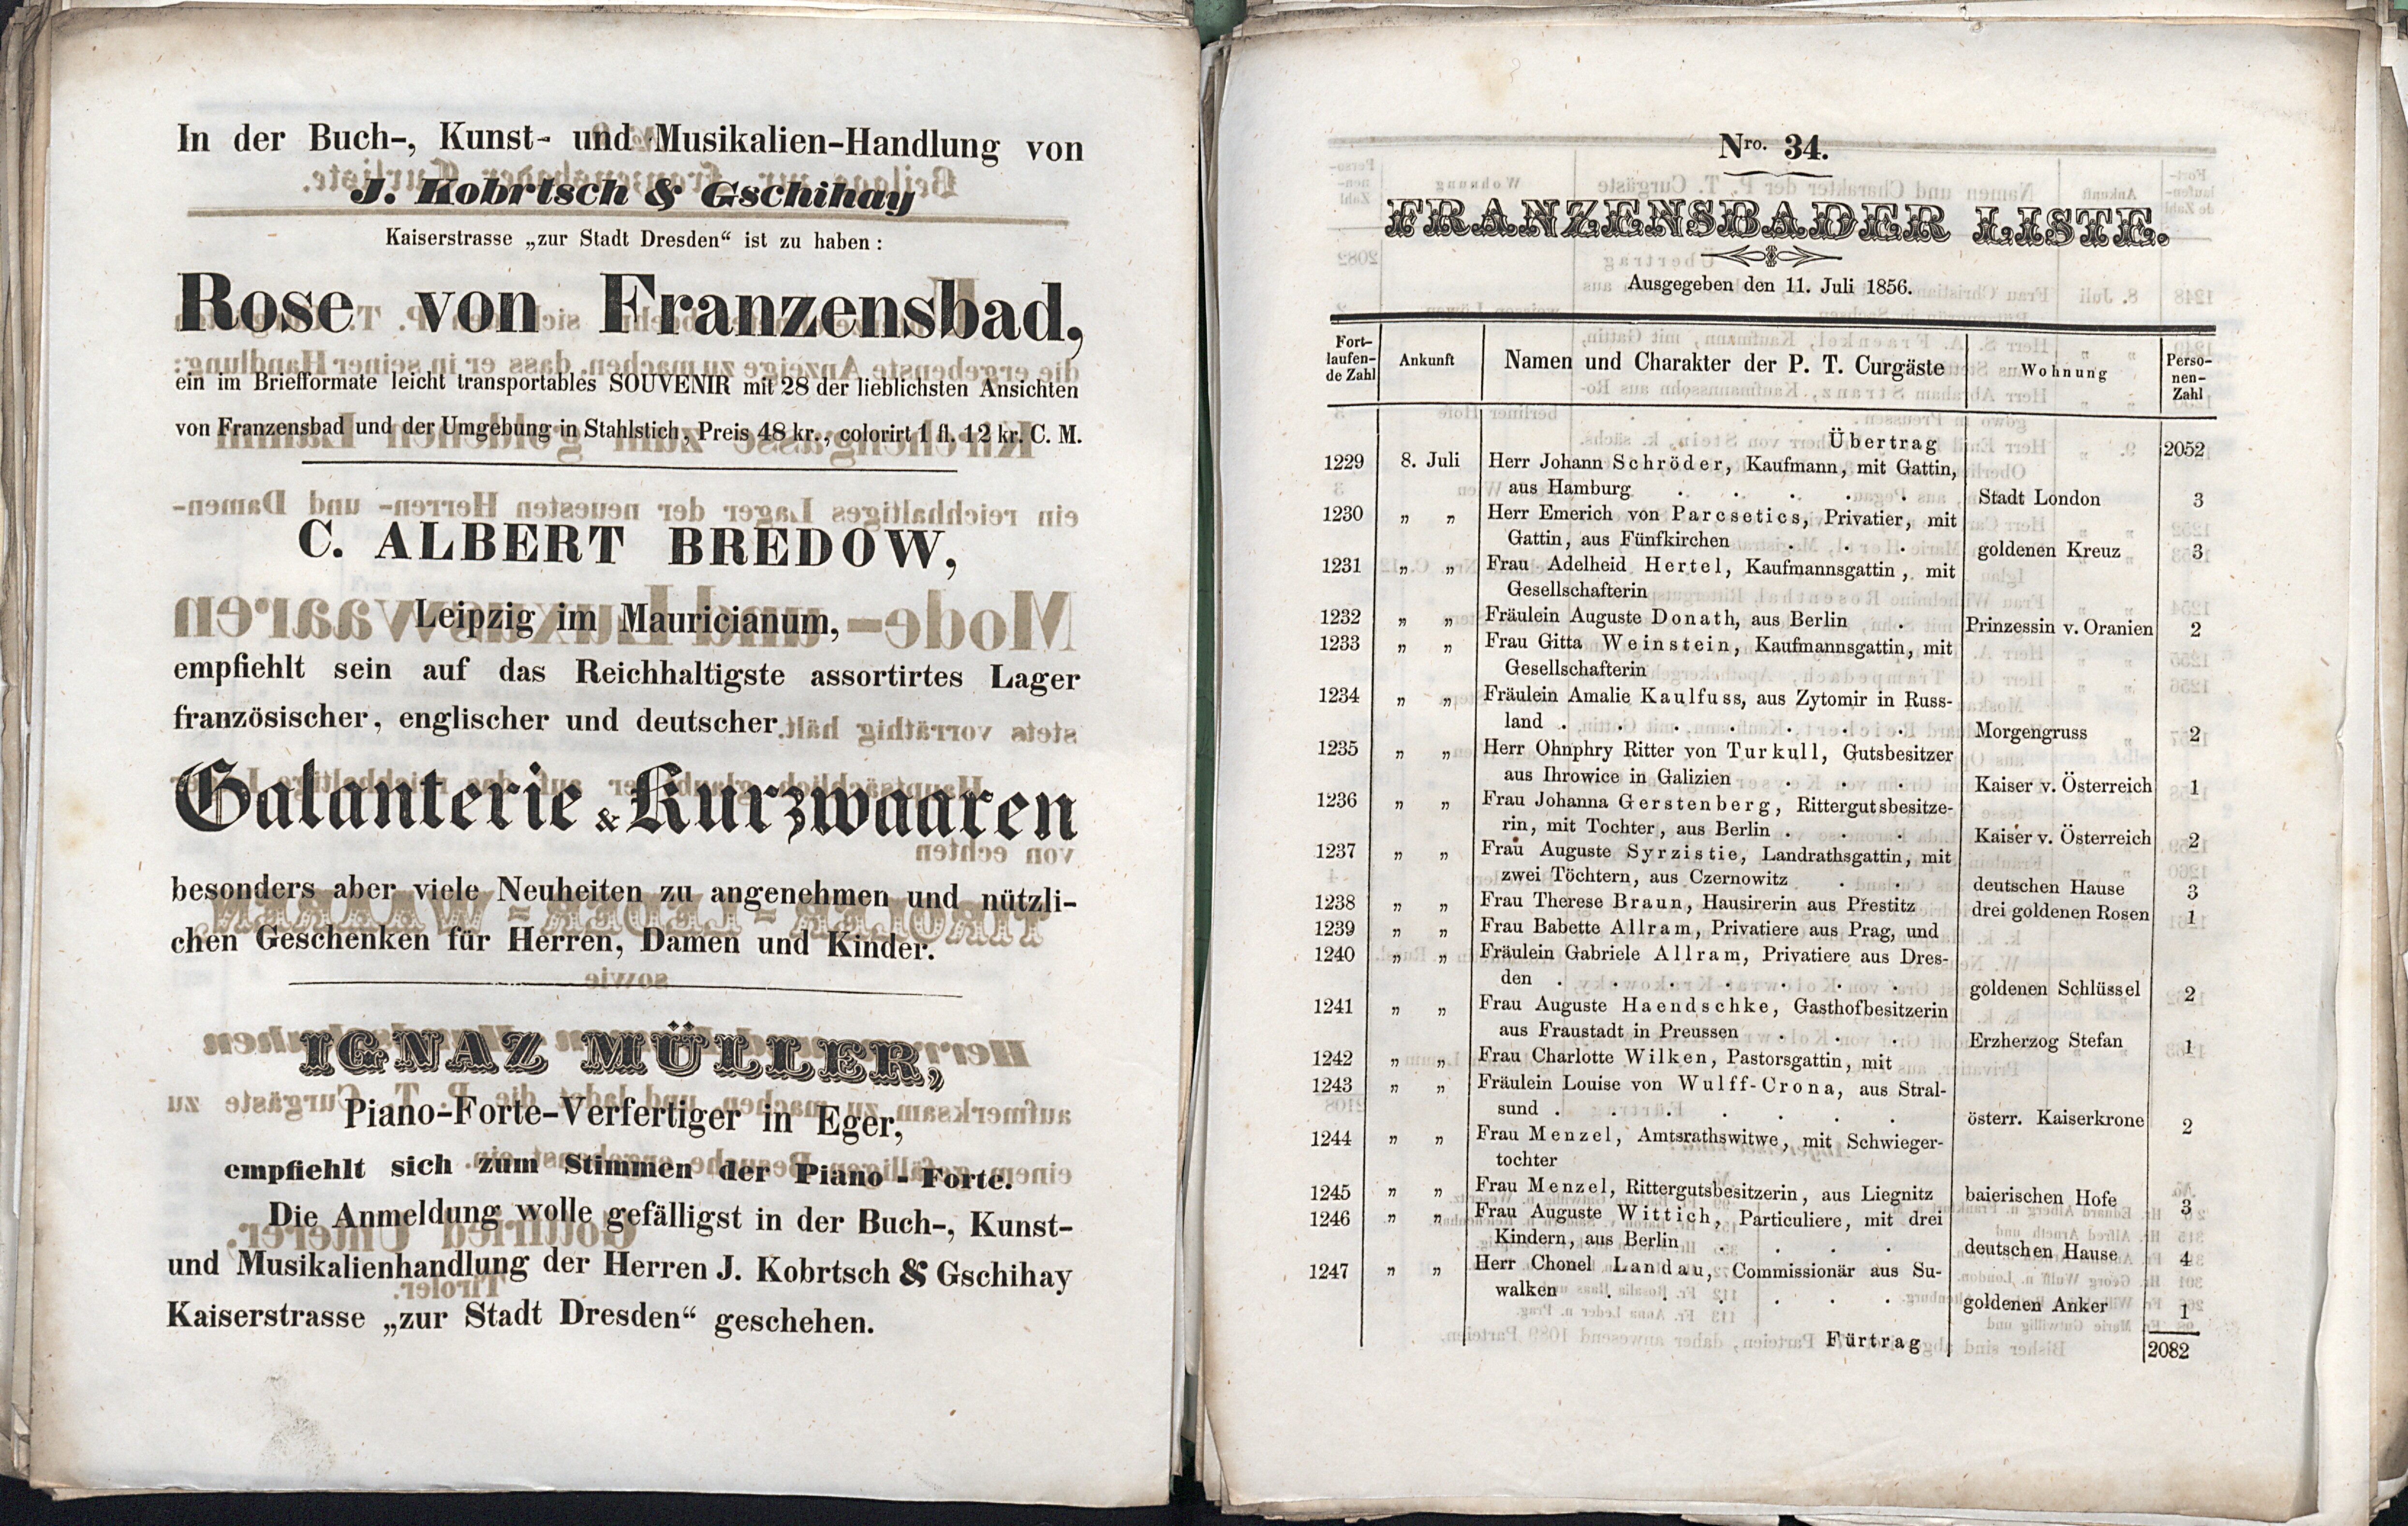 In der Buch-, Kunst- und Musikalien-Handlung von
J. Kobrtsch & Gschihay
Kaiserstrasse „zur Stadt Dresden“ ist zu haben:
Rose von Franzensbad,
ein im Briefformate leicht transportables SOUVENIR mit 28 der lieblichsten Ansichten
von Franzensbad und der Umgebung in Stahlstich, Preis 48 kr., colorirt 1 fl. 12 kr. C. M.
C. ALBERT BREDOW,
Leipzig im Mauricianum,
empfiehlt sein auf das Reichhaltigste assortirtes Lager
französischer, englischer und deutscher
Galanterie & Kurzwaaren
besonders aber viele Neuheiten zu angenehmen und nützli-
chen Geschenken für Herren, Damen und Kinder.
IGNAZ MÜLLER,
Piano-Forte-Verfertiger in Eger,
empfiehlt sich zum Stimmen der Piano-Forte.
Die Anmeldung wolle gefälligst in der Buch-, Kunst-
und Musikalienhandlung der Herren J. Kobrtsch & Gschihay
Kaiserstrasse „zur Stadt Dresden“ geschehen.
Nro. 34.
FRANZENSBADER LISTE.
Ausgegeben den 11. Juli 1856.
Fort-
laufen-
de Zahl
Ankunft
Namen und Charakter der P. T. Curgäste
Wohnung
Perso-
nen-
Zahl
Übertrag 2052
1229 8. Juli Herr Johann Schröder, Kaufmann, mit Gattin,
aus Hamburg . . . . . Stadt London 3
1230 „ „ Herr Emerich von Parcsetics, Privatier, mit
Gattin, aus Fünfkirchen . . . goldenen Kreuz 3
1231 „ „ Frau Adelheid Hertel, Kaufmannsgattin, mit
Gesellschafterin
1232 „ „ Fräulein Auguste Donath, aus Berlin . Prinzessin v. Oranien 2
1233 „ „ Frau Gitta Weinstein, Kaufmannsgattin, mit
Gesellschafterin
1234 „ „ Fräulein Amalie Kaulfuss, aus Zytomir in Russ-
land . . . . . . . Morgengruss 2
1235 „ „ Herr Ohnphry Ritter von Turkull, Gutsbesitzer
aus Ihrowice in Galizien . . . Kaiser v. Österreich 1
1236 „ „ Frau Johanna Gerstenberg, Rittergutsbesitze-
rin, mit Tochter, aus Berlin . . . Kaiser v. Österreich 2
1237 „ „ Frau Auguste Syrzistie, Landrathsgattin, mit
zwei Töchtern, aus Czernowitz . . deutschen Hause 3
1238 „ „ Frau Therese Braun, Hausirerin aus Přestitz drei goldenen Rosen 1
1239 „ „ Frau Babette Allram, Privatiere aus Prag, und
1240 „ „ Fräulein Gabriele Allram, Privatiere aus Dres-
den . . . . . . . goldenen Schlüssel 2
1241 „ „ Frau Auguste Haendschke, Gasthofbesitzerin
aus Fraustadt in Preussen . . . Erzherzog Stefan 1
1242 „ „ Frau Charlotte Wilken, Pastorsgattin, mit
1243 „ „ Fräulein Louise von Wulff-Crona, aus Stral-
sund . . . . . . . österr. Kaiserkrone 2
1244 „ „ Frau Menzel, Amtsrathswitwe, mit Schwieger-
tochter
1245 „ „ Frau Menzel, Rittergutsbesitzerin, aus Liegnitz baierischen Hofe 3
1246 „ „ Frau Auguste Wittich, Particuliere, mit drei
Kindern, aus Berlin . . . . deutschen Hause 4
1247 „ „ Herr Chonel Landau, Commissionär aus Su-
walken . . . . . . goldenen Anker 1
Fürtrag 2082